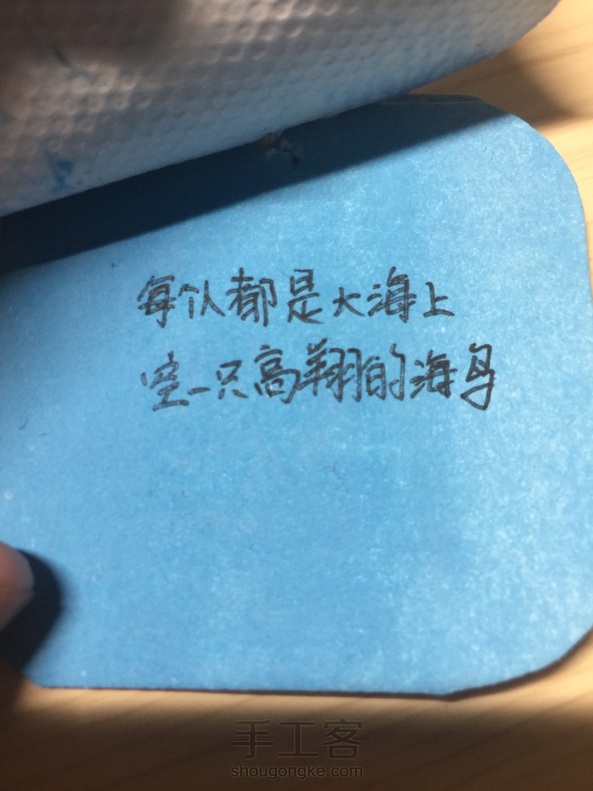 每个人都是大海上
空一只高翔的海鸟
手工客
shougongke.com